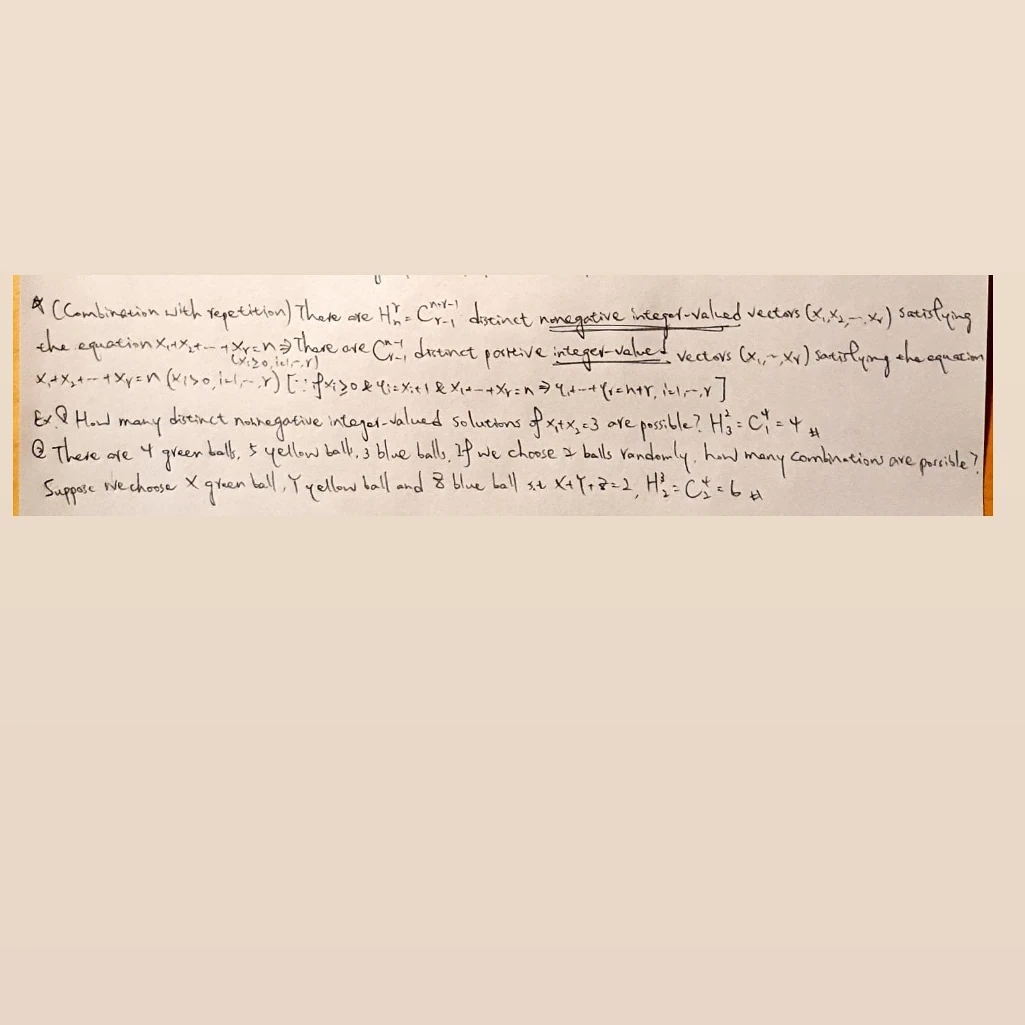 ☆ (Combination with repetition) There are Hⁿʳ = Cⁿ⁺ʳ⁻¹ᵣ₋₁ distinct nonegative integer-valued vectors (x₁,x₂,…,xᵣ) satisfying
the equation x₁+x₂+…+xᵣ=n ⇒ There are Cⁿ⁻¹ᵣ₋₁ distinct positive integer-valued vectors (x₁,…,xᵣ) satisfying the equation
(xᵢ≥0, i=1,…,r)
x₁+x₂+…+xᵣ=n (xᵢ>0, i=1,…,r) [∵ if xᵢ≥0 & yᵢ=xᵢ+1 & x₁+…+xᵣ=n ⇒ y₁+…+yᵣ=n+r, i=1,…,r]
Ex ① How many distinct nonnegative integer-valued solutions of x₁+x₂=3 are possible? H²₃ = C⁴₁ = 4 #
② There are 4 green balls, 5 yellow balls, 3 blue balls. If we choose 2 balls randomly, how many combinations are possible?
Suppose we choose X green ball, Y yellow ball and Z blue ball s.t X+Y+Z=2, H³₂ = C⁴₂ = 6 #